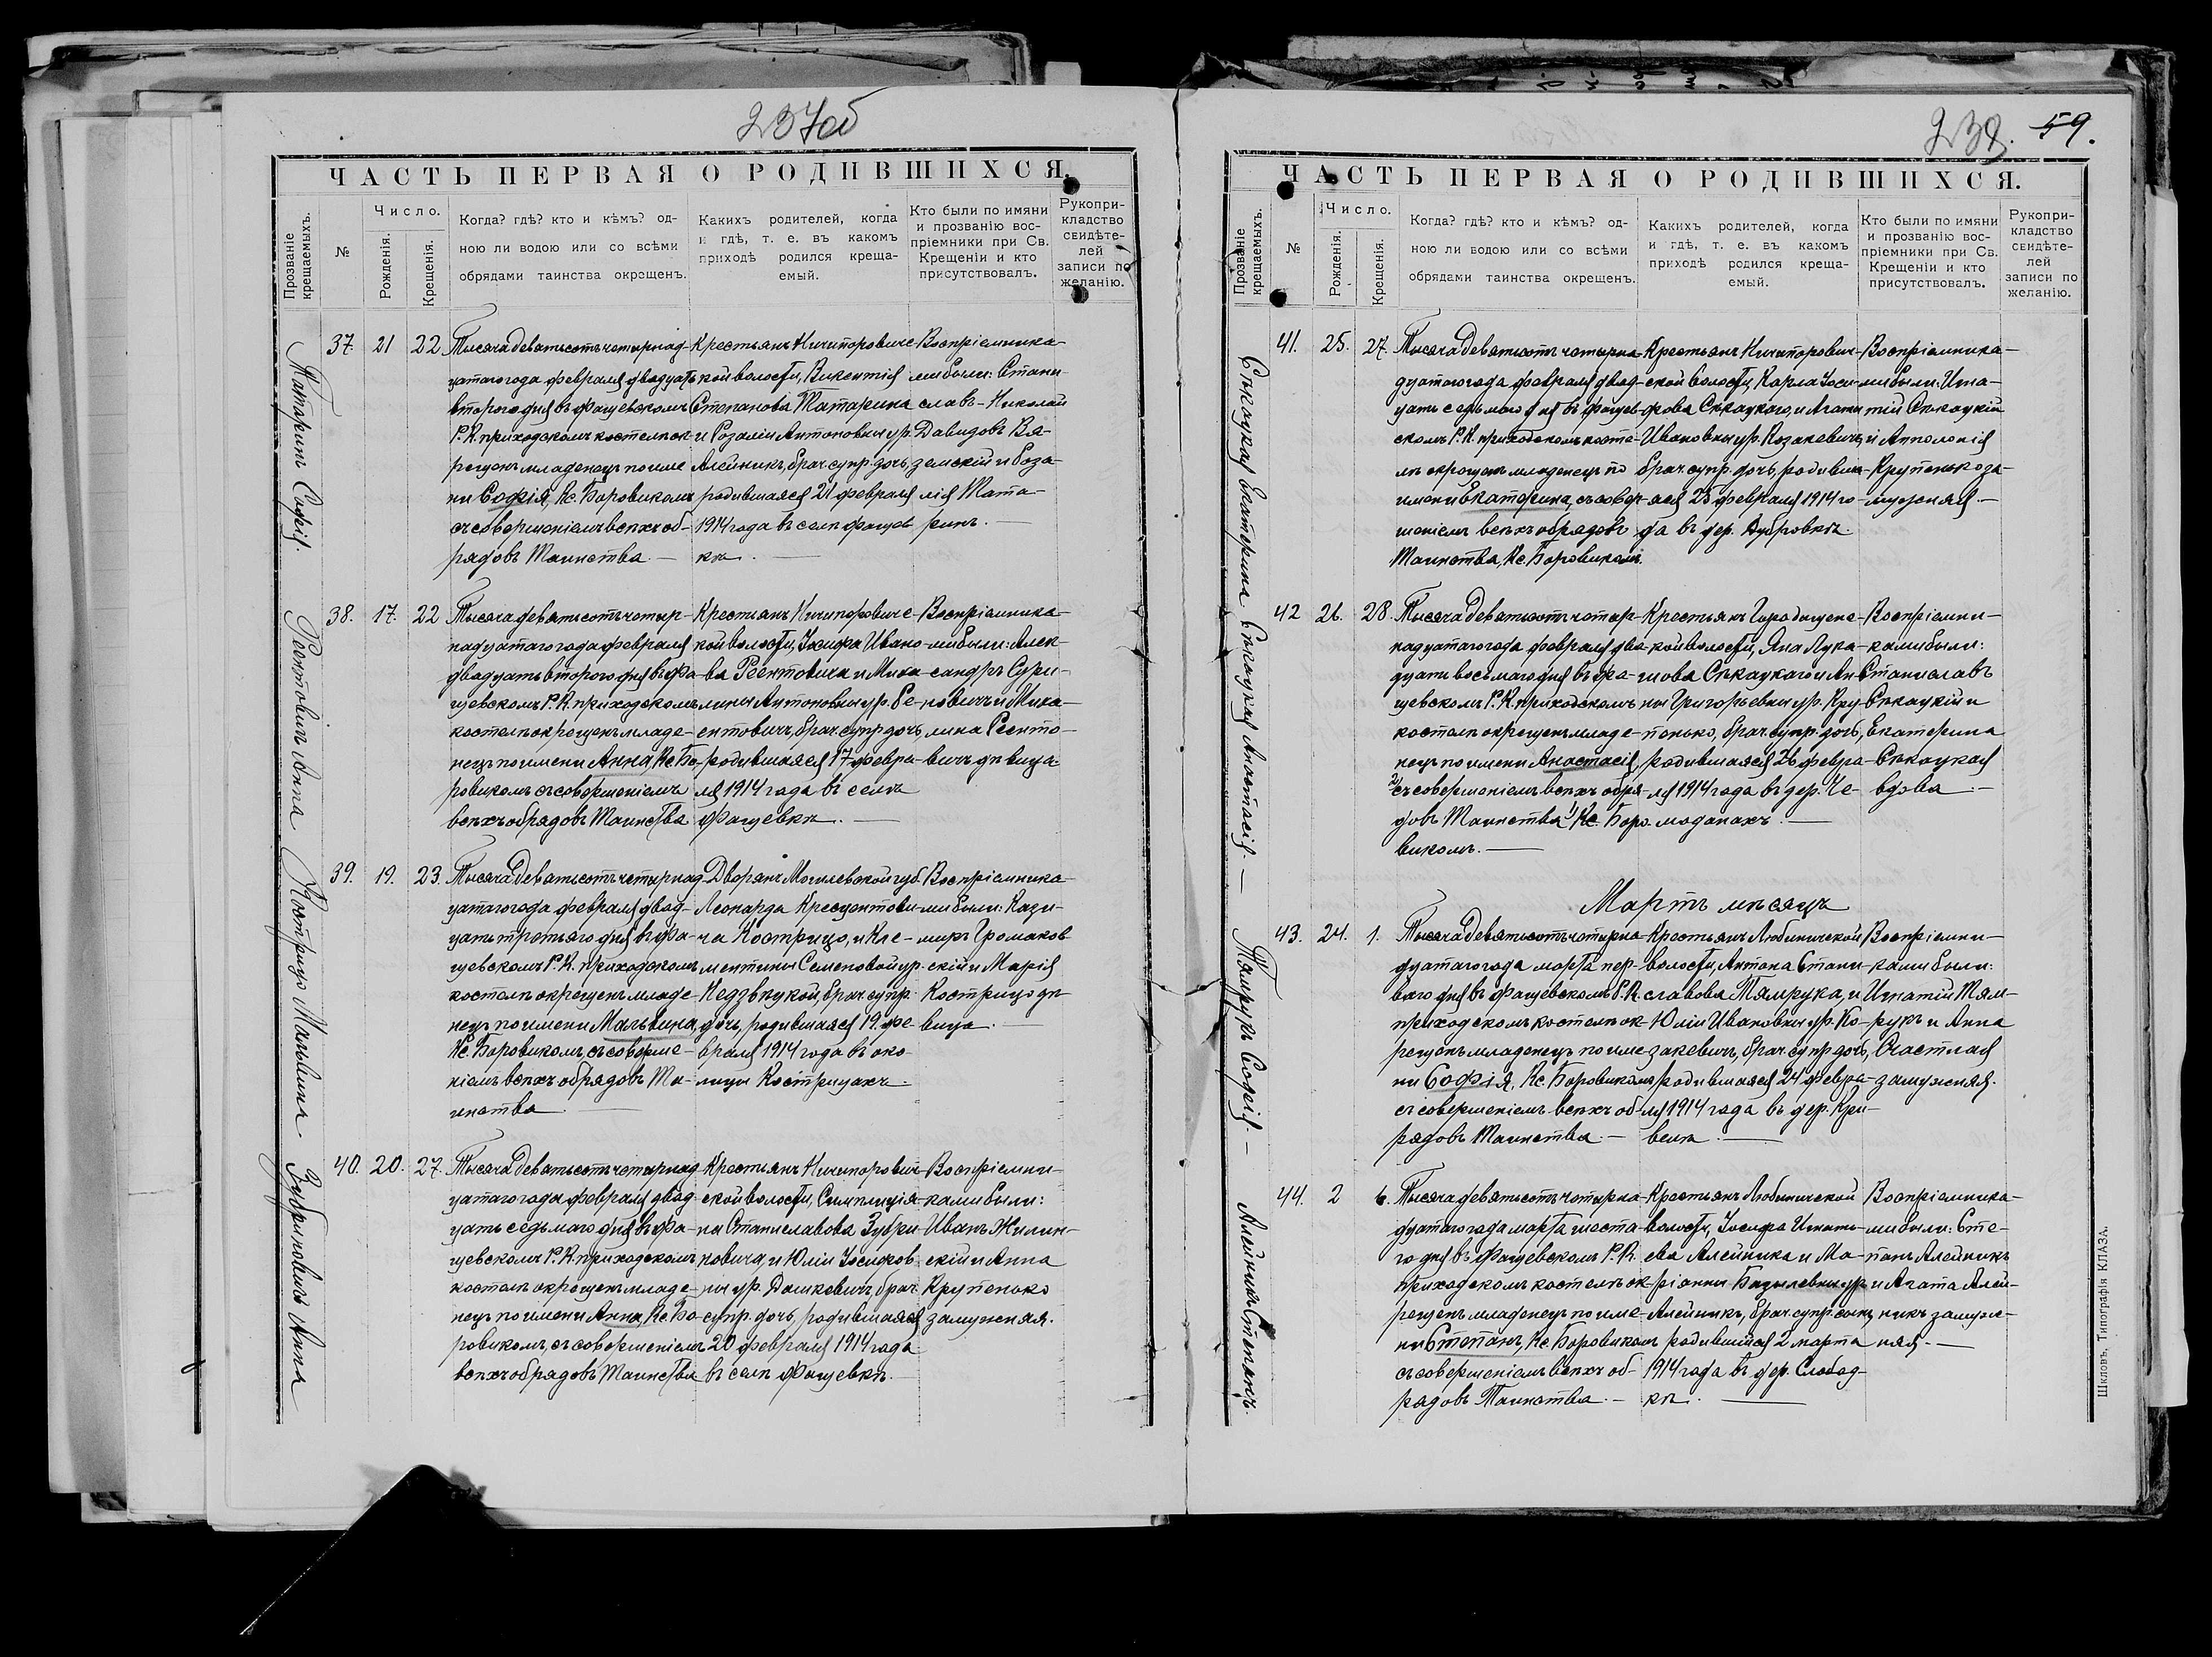 237об
ЧАСТЬ ПЕРВАЯ О РОДИВШИХСЯ.
Прозваніе крещаемыхъ.
№
Число.
Рожденія.
Крещенія.
Когда? гдѣ? кто и кѣмъ? од-
ною ли водою или со всѣми
обрядами таинства окрещенъ.
Какихъ родителей, когда
и гдѣ, т. е. въ какомъ
приходѣ родился креща-
емый.
Кто были по имяни
и прозванію вос-
пріемники при Св.
Крещеніи и кто
присутствовалъ.
Рукопри-
кладство
свидѣте-
лей
записи по
желанію.
Татаринъ Софія.
37. 21 22
Тысяча девятьсотъ четырнад-
цатаго года февраля двадцать
второго дня въ Фащевскомъ
Р.К. приходскомъ костелѣ ок-
рещенъ младенецъ по име
ни Софія, Кс. Боровикомъ
съ совершеніемъ всѣхъ об-
рядовъ Таинства. —
Крестьянъ Ничипоровичс-
кой волости, Викентія
Степанова Татарина
и Розаліи Антоновны ур.
Алейникъ, брач. супр. дочь,
родившаяся 21 февраля
1914 года въ селѣ Фащев
кѣ. —
Воспріемника-
ми были: Стани-
славъ-Николай
Давидовъ Вя-
земскій и Роза-
лія Тата-
ринъ. —
Реентовичъ Анна
38. 17. 22
Тысяча девятьсотъ четыр-
надцатаго года февраля
двадцать второго дня въ Фа-
щевскомъ Р.К. приходскомъ
костелѣ окрещенъ младе-
нецъ по имени Анна, Кс. Бо-
ровикомъ съ совершеніемъ
всѣхъ обрядовъ Таинства
Крестьянъ Ничипоровичс-
кой волости, Іосифа Ивано-
ва Реентовича и Миха-
лины Антоновны ур. Ре-
ентовичъ, брач. супр. дочь,
родившаяся 17 февра-
ля 1914 года въ селѣ
Фащевкѣ. —
Воспріемника-
ми были: Алек-
сандръ Сури-
новичъ и Миха-
лина Реенто-
вичъ дѣвица.
Кострицо Мальвина
39. 19. 23.
Тысяча девятьсотъ четырнад
цатаго года февраля двад-
цать третьяго дня въ Фа-
щевскомъ Р.К. приходскомъ
костелѣ окрещенъ младе-
нецъ по имени Мальвина,
Кс. Боровикомъ, съ соверше-
ніемъ всѣхъ обрядовъ Та-
инства —
Дворянъ Могилевской губ.
Леонарда Кресцентови-
ча Кострицо, и Кле-
ментины Семеновой ур.
Недзвѣцкой, брач. супр.
дочь, родившаяся 19. фе-
враля 1914 года въ око-
лицы Кострицахъ.
Воспріемника-
ми были: Кази-
миръ Громаков
скій и Марія
Кострицо дѣ
вица. —
Зубриновичъ Анна
40. 20. 27.
Тысяча девятьсотъ четырнад
цатаго года февраля двад-
цать седьмого дня въ Фа-
щевскомъ Р.К. приходскомъ
костелѣ окрещенъ младе-
нецъ по имени Анна, Кс. Бо-
ровикомъ, съ совершеніемъ
всѣхъ обрядовъ Таинства
Крестьянъ Ничипорович
ской волости, Симплиція-
на Станиславова Зубри
новича, и Юліи Іосифов
ны ур. Дашкевичъ, брач.
супр. дочь, родившаяся
20 февраля 1914 года
въ селѣ Фащевкѣ. —
Воспріемни-
ками были:
Иванъ Жилин-
скій и Анна
Крупенько
замужняя.
238. 59.
ЧАСТЬ ПЕРВАЯ О РОДИВШИХСЯ.
Прозваніе крещаемыхъ.
№
Число.
Рожденія.
Крещенія.
Когда? гдѣ? кто и кѣмъ? од-
ною ли водою или со всѣми
обрядами таинства окрещенъ.
Какихъ родителей, когда
и гдѣ, т. е. въ какомъ
приходѣ родился креща-
емый.
Кто были по имяни
и прозванію вос-
пріемники при Св.
Крещеніи и кто
присутствовалъ.
Рукопри-
кладство
свидѣте-
лей
записи по
желанію.
Сѣкацкая Екатерина
41. 25. 27.
Тысяча девятьсотъ четырна-
дцатаго года февраля двад-
цать седьмого дня въ Фащев-
скомъ Р.К. приходскомъ косте-
лѣ окрещенъ младенецъ по
имени Екатерина, съ совер-
шеніемъ всѣхъ обрядовъ
Таинства, Кс. Боровикомъ.
Крестьянъ Ничипорович-
ской волости, Карла Іоси-
фова Сѣкацкого, и Агаты
Ивановны ур. Козакевичъ,
брач. супр. дочь, родивша-
яся 25 февраля 1914 го-
да въ дер. Дубровкѣ.
Воспріемника-
ми были: Игна-
тій Сѣкацкій
и Апполонія
Крупенько за-
мужняя. —
Сѣкацкая Анастасія. —
42 26. 28.
Тысяча девятьсотъ четыр-
надцатаго года февраля два-
дцать восьмого дня въ Фа-
щевскомъ Р.К. приходскомъ
костелѣ окрещенъ младе-
нецъ по имени Анастасія,
2) съ совершеніемъ всѣхъ обря-
довъ Таинства 1) Кс. Боро-
викомъ. —
Крестьянъ Городищенс-
кой волости, Яна Лука-
шова Сѣкацкаго и Ан
ны Григорьевны ур. Кру-
пенько, брач. супр. дочь,
родившаяся 26 февра-
ля 1914 года въ дер. Че-
моданахъ. —
Воспріемни-
ками были:
Станиславъ
Сѣкацкій и
Екатерина
Сѣкацкая
вдова. —
Мартъ мѣсяцъ
Тямрукъ Софія. —
43. 24. 1.
Тысяча девятьсотъ четырна-
дцатаго года марта пер-
ваго дня въ Фащевскомъ Р.К.
приходскомъ костелѣ ок-
рещенъ младенецъ по име-
ни Софія, Кс. Боровикомъ
съ совершеніемъ всѣхъ об-
рядовъ Таинства. —
Крестьянъ Любиничской
волости, Антона Стани-
славова Тямрука, и
Юліи Ивановны ур. Ко-
закевичъ, брач. супр. дочь,
родившаяся 24 февра-
ля 1914 года въ дер. Кри-
велѣ. —
Воспріемни-
ками были:
Игнатій Тям-
рукъ и Анна
Счастная
замужняя.
Алейникъ Степанъ.
44. 2 6.
Тысяча девятьсотъ четырна-
дцатаго года марта шеста-
го дня въ Фащевскомъ Р.К.
приходскомъ костелѣ ок-
рещенъ младенецъ по име-
ни Степанъ, Кс. Боровикомъ
съ совершеніемъ всѣхъ об-
рядовъ Таинства. —
Крестьянъ Любиничской
волости, Іосифа Игнать-
ева Алейника и Ма-
ріанны Базылевны ур.
Алейникъ, брач. супр. сынъ,
родившійся 2 марта
1914 года въ дер. Слобод-
кѣ. —
Воспріемника-
ми были: Сте-
панъ Алейникъ
и Агата Алей-
никъ замуж-
няя. —
Шкловъ, Типографія КЛАЗА.